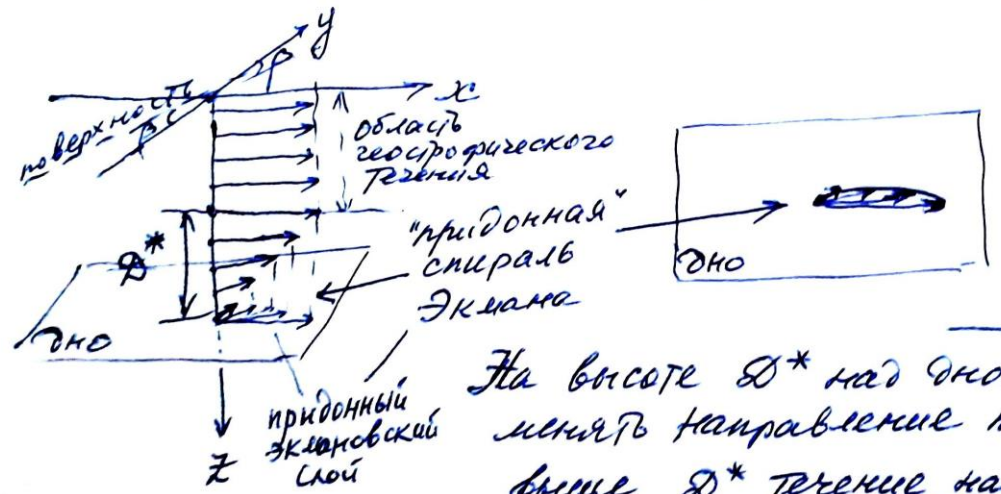 y
φ
x
поверхность
область
геострофического
течения
D*
"придонная"
спираль
Экмана
дно
дно
придонный
экмановский
слой
z
На высоте D* над дно
менять направление
выше D* течение на